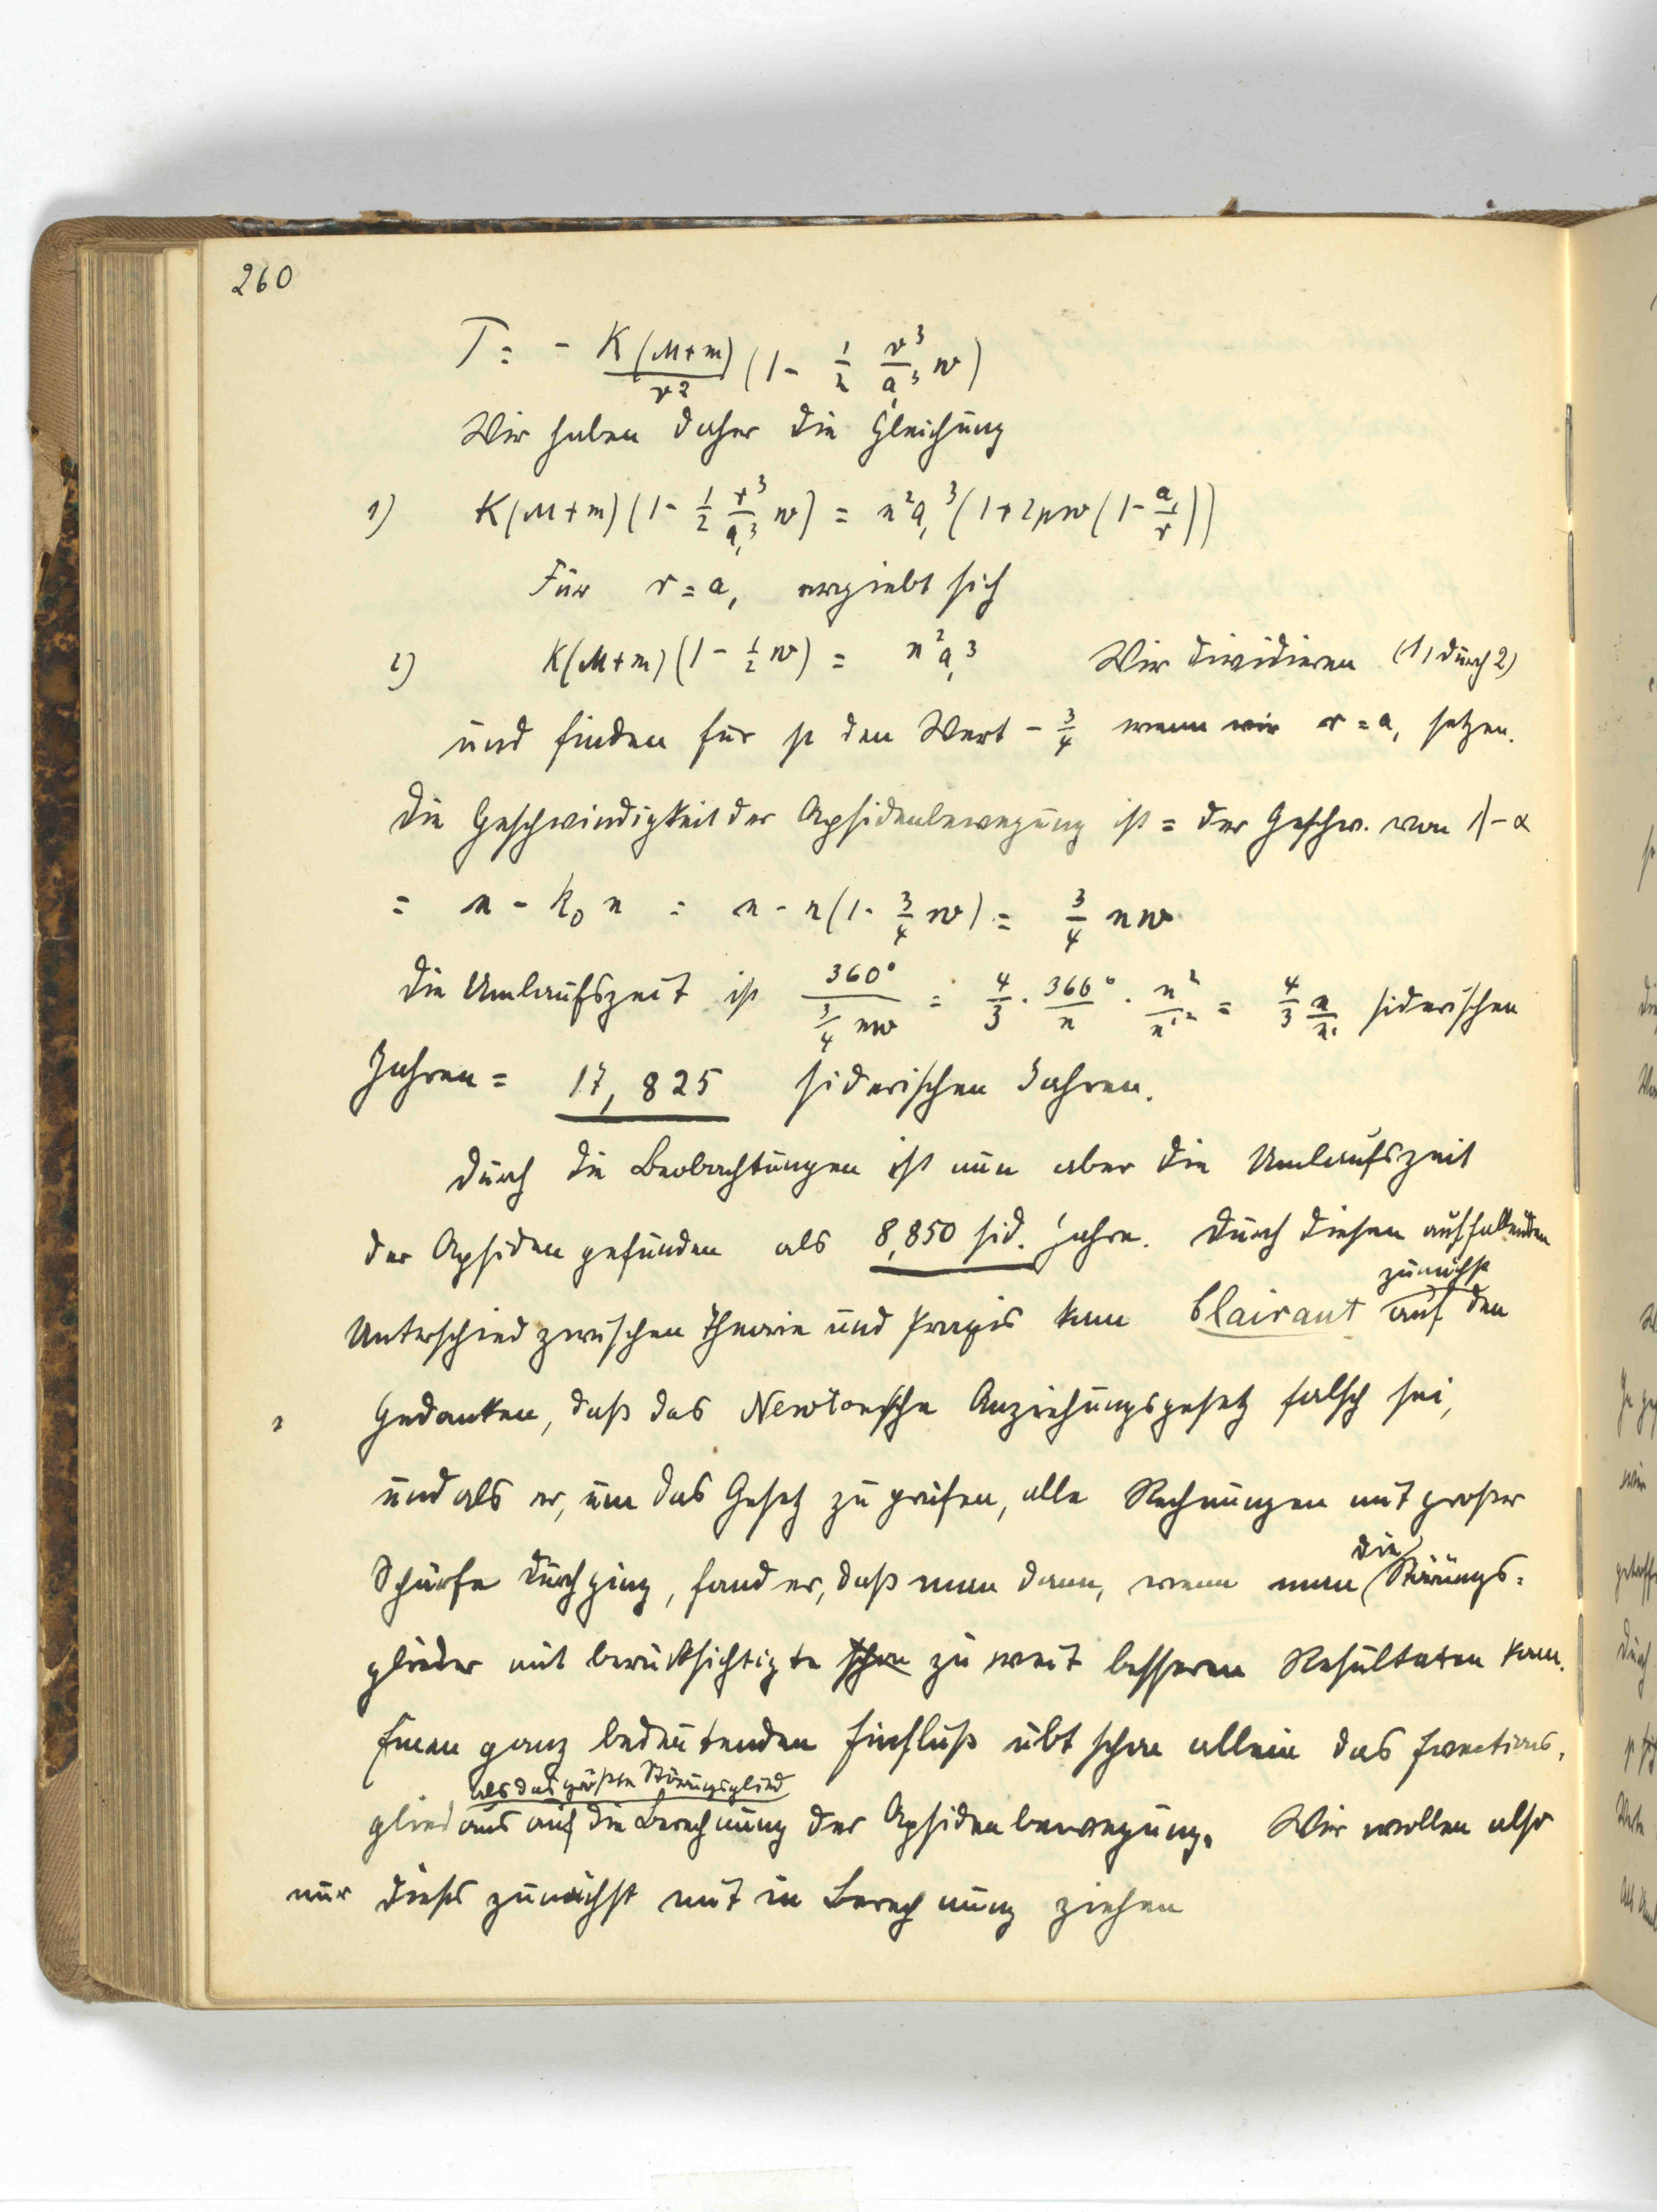 260
T = - K(M+m)/r² (1 - 1/2 r³/a,³ w)
Wir haben daher die Gleichung
1) K(M+m)(1 - 1/2 r³/a,³ w) = n²a,³(1+2pw(1 - a,/r))
Für r = a, ergiebt sich
2) K(M+m)(1 - 1/2 w) = n²a,³ Wir dividieren (1) durch 2)
und finden für p den Wert - 3/4 wenn wir r = a, setzen.
Die Geschwindigkeit der Apsidenbewegung ist = der Geschw. von l - α
= n - k₀ n = n - n(1 - 3/4 w) = 3/4 nw
Die Umlaufszeit ist 360°/(3/4 nw) = 4/3 · 360°/n · n²/n'² = 4/3 n/n' siderischen
Jahren = 17,825 siderischen Jahren.
Durch die Beobachtungen ist nun aber die Umlaufszeit
der Apsiden gefunden als 8,850 sid. Jahre. Durch diesen auffallenden
zunächst
Unterschied zwischen Theorie und Praxis kam Clairaut auf den
Gedanken, daß das Newtonsche Anziehungsgesetz falsch sei,
und als er, um das Gesetz zu prüfen, alle Rechnungen mit großer
die
Schärfe durchging, fand er, daß man dann, wenn man Störungs-
glieder mit berücksichtigte schon zu weit besseren Resultaten kam.
Einen ganz bedeutenden Einfluß übt schon allein das Evections-
als das größte Störungsglied
glied aus auf die Berechnung der Apsidenbewegung. Wir wollen also
nur dieses zunächst mit in Berechnung ziehen